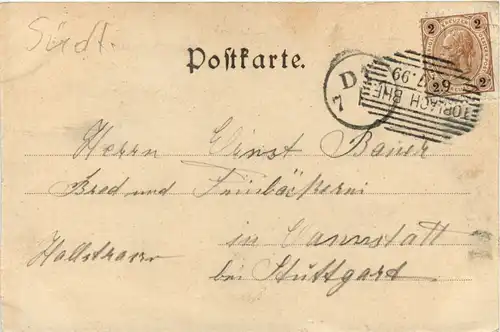 Südt.
Postkarte.
2 2
2 2
TOBLACH BHF
6.7.99
D
7
Herrn Ernst Bauer
Brod und Feinbäckerei
Hallstrasse
in Cannstatt
bei Stuttgard